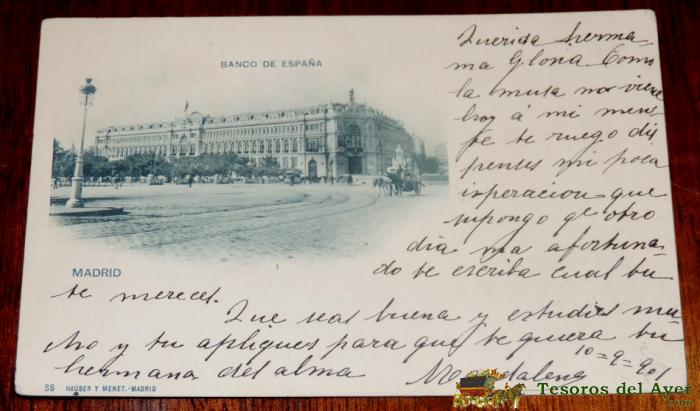 BANCO DE ESPAÑA
Querida herma-
na Gloria Como
la musa no viene
hoy á mi men-
te te ruego dis
penses mi poca
isperacion que
supongo qe otro
dia mas afortuna-
do te escriba cual tu
te mereces.
MADRID
Que seas buena y estudies mu
cho y tu apliques para que te quiera tu
hermana del alma
Magdalena
10=9=901
35 HAUSER Y MENET.-MADRID
Tesoros del Ayer
.com